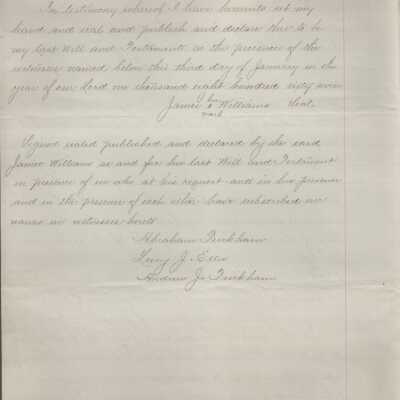 In testimony whereof I have hereunto set my
hand and seal and publish and declare this to be
my last Will and Testament in the presence of the
witnesses named below this third day of January in the
year of our Lord one thousand eight hundred sixty seven
his
James x Williams Seal
mark
Signed sealed published and declared by the said
James Williams as and for his last Will and Testament
in presence of us who at his request and in his presence
and in the presence of each other have subscribed our
names as witnesses hereto
Abraham Pinkham
J. Ellis
Andrew J. Pinkham